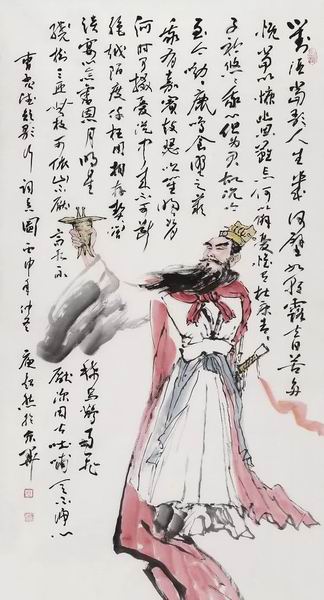 對酒當歌人生幾何譬如朝露去日苦多
慨當以慷幽思難忘何以解憂唯有杜康青青
子衿悠悠我心但為君故沉吟
至今呦呦鹿鳴食野之蘋
我有嘉賓鼓瑟吹笙明明
何時可掇憂從中來不可斷
絕越陌度阡枉用相存契闊
談宴心念舊恩月明星
稀烏鵲南飛
繞樹三匝無枝可依山不厭高水不
厭深周公吐哺天下歸心
曹孟德短歌行詞意圖丙申年仲冬
於京華